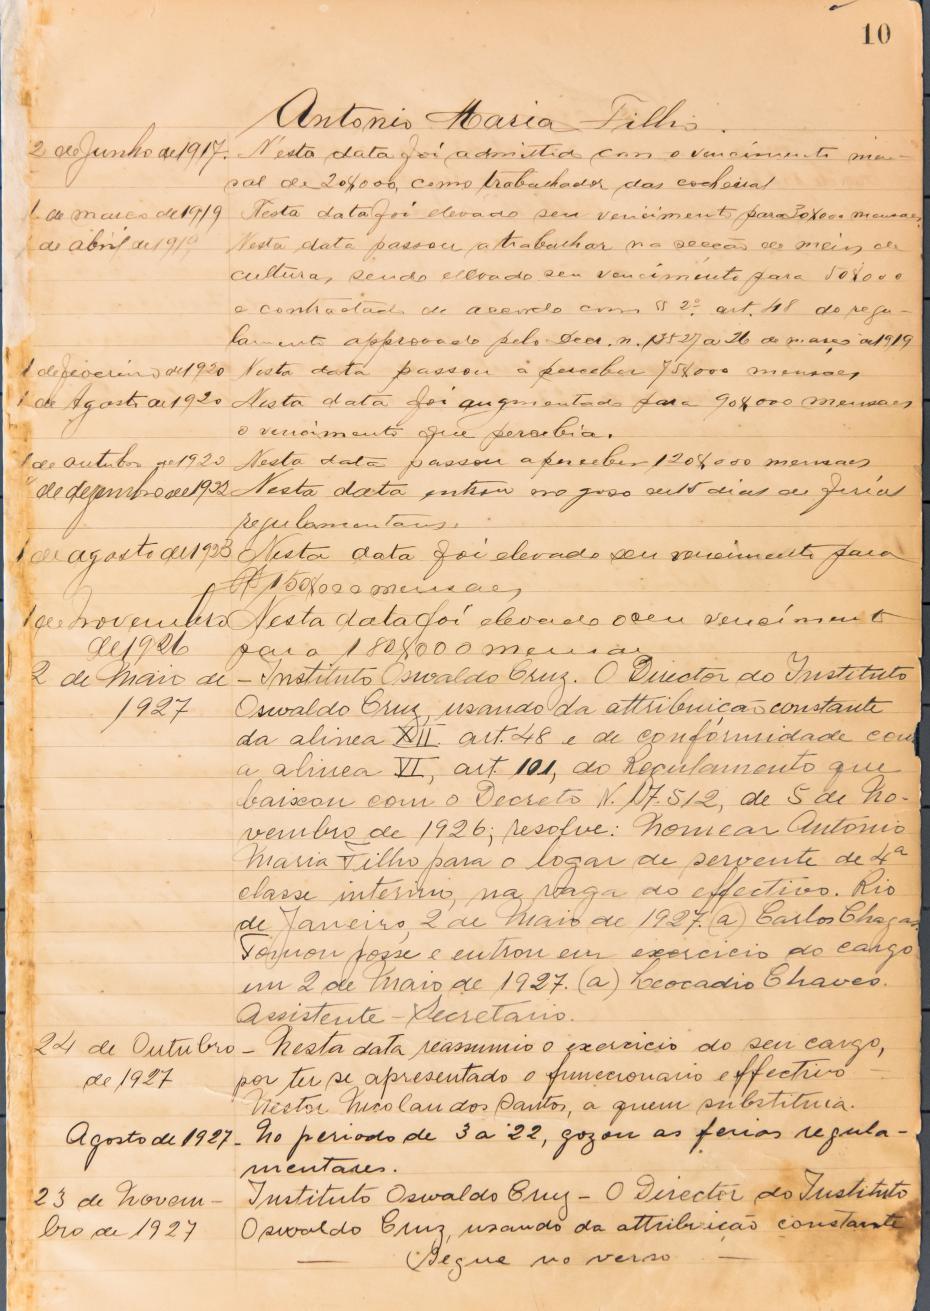 10
Antonio Maria Filho.
2 de Junho de 1917. Nesta data foi admittido com o vencimento men-
sal de 20$000, como trabalhador das cocheiras
1 de março de 1919 Nesta data foi elevado seu vencimento para 30$000 mensaes
1 de abril de 1919 Nesta data passou a trabalhar na secção de meios de
cultura, sendo elevado seu vencimento para 50$000
e contractado de accordo com § 2º. art. 48 do regu-
lamento approvado pelo Decr. n. 13527 a 26 de março de 1919
1 de fevereiro de 1920 Nesta data passou a perceber 75$000 mensaes
1 de Agosto de 1920 Nesta data foi augmentado para 90$000 mensaes
o vencimento que percebia.
1 de outubro de 1920 Nesta data passou a perceber 120$000 mensaes
de dezembro de 1922 Nesta data entrou no goso de 15 dias de ferias
regulamentares.
1 de agosto de 1923 Nesta data foi elevado seu vencimento para
150$000 mensaes
1 de Novembro Nesta data foi elevado o seu vencimento
de 1926 para 180$000 mensaes
2 de Maio de - Instituto Oswaldo Cruz. O Director do Instituto
1927 Oswaldo Cruz, usando da attribuição constante
da alinea XII. art. 48 e de confórmidade com
a alinea VI, art. 101, do Regulamento que
baixou com o Decreto N. 17.512, de 5 de No-
vembro de 1926; resolve: Nomear Antonio
Maria Filho para o logar de servente de 4ª
classe interino, na vaga do effectivo. Rio
de Janeiro, 2 de Maio de 1927. (a) Carlos Chagas
Tomou posse e entrou em exercicio do cargo
em 2 de Maio de 1927. (a) Leocadio Chaves.
Assistente - Secretario.
24 de Outubro - Nesta data reassumio o exercicio do seu cargo,
de 1927 por ter se apresentado o funccionario effectivo -
Nestor Nicolau dos Santos, a quem substituia.
Agosto de 1927 - No periodo de 3 a 22, gozou as ferias regula-
mentares.
23 de Novem- Instituto Oswaldo Cruz - O Director do Instituto
bro de 1927 Oswaldo Cruz, usando da attribuição constante
(Segue no verso